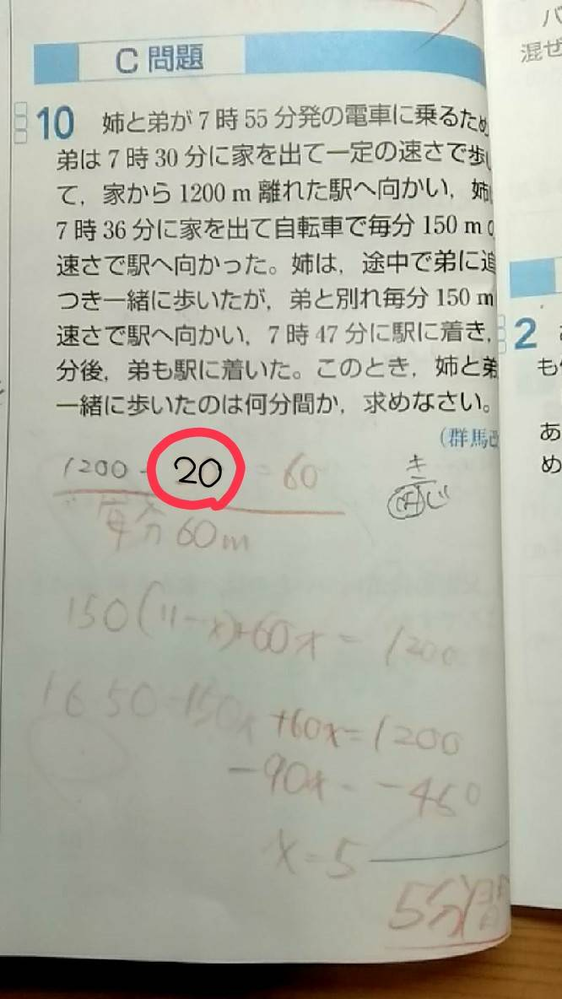 C 問題
10 姉と弟が7時55分発の電車に乗るため
弟は7時30分に家を出て一定の速さで歩い
て，家から1200 m 離れた駅へ向かい，姉は
7時36分に家を出て自転車で毎分150 m の
速さで駅へ向かった。姉は，途中で弟に追
つき一緒に歩いたが，弟と別れ毎分150 m
速さで駅へ向かい，7時47分に駅に着き，
分後，弟も駅に着いた。このとき，姉と弟
一緒に歩いたのは何分間か，求めなさい。
(群馬改
1200 ÷ 20 = 60
毎分60m
き
150(11-x)+60x = 1200
1650-150x+60x=1200
-90x = -450
x = 5
5分間
混ぜ
2
も
あ
め